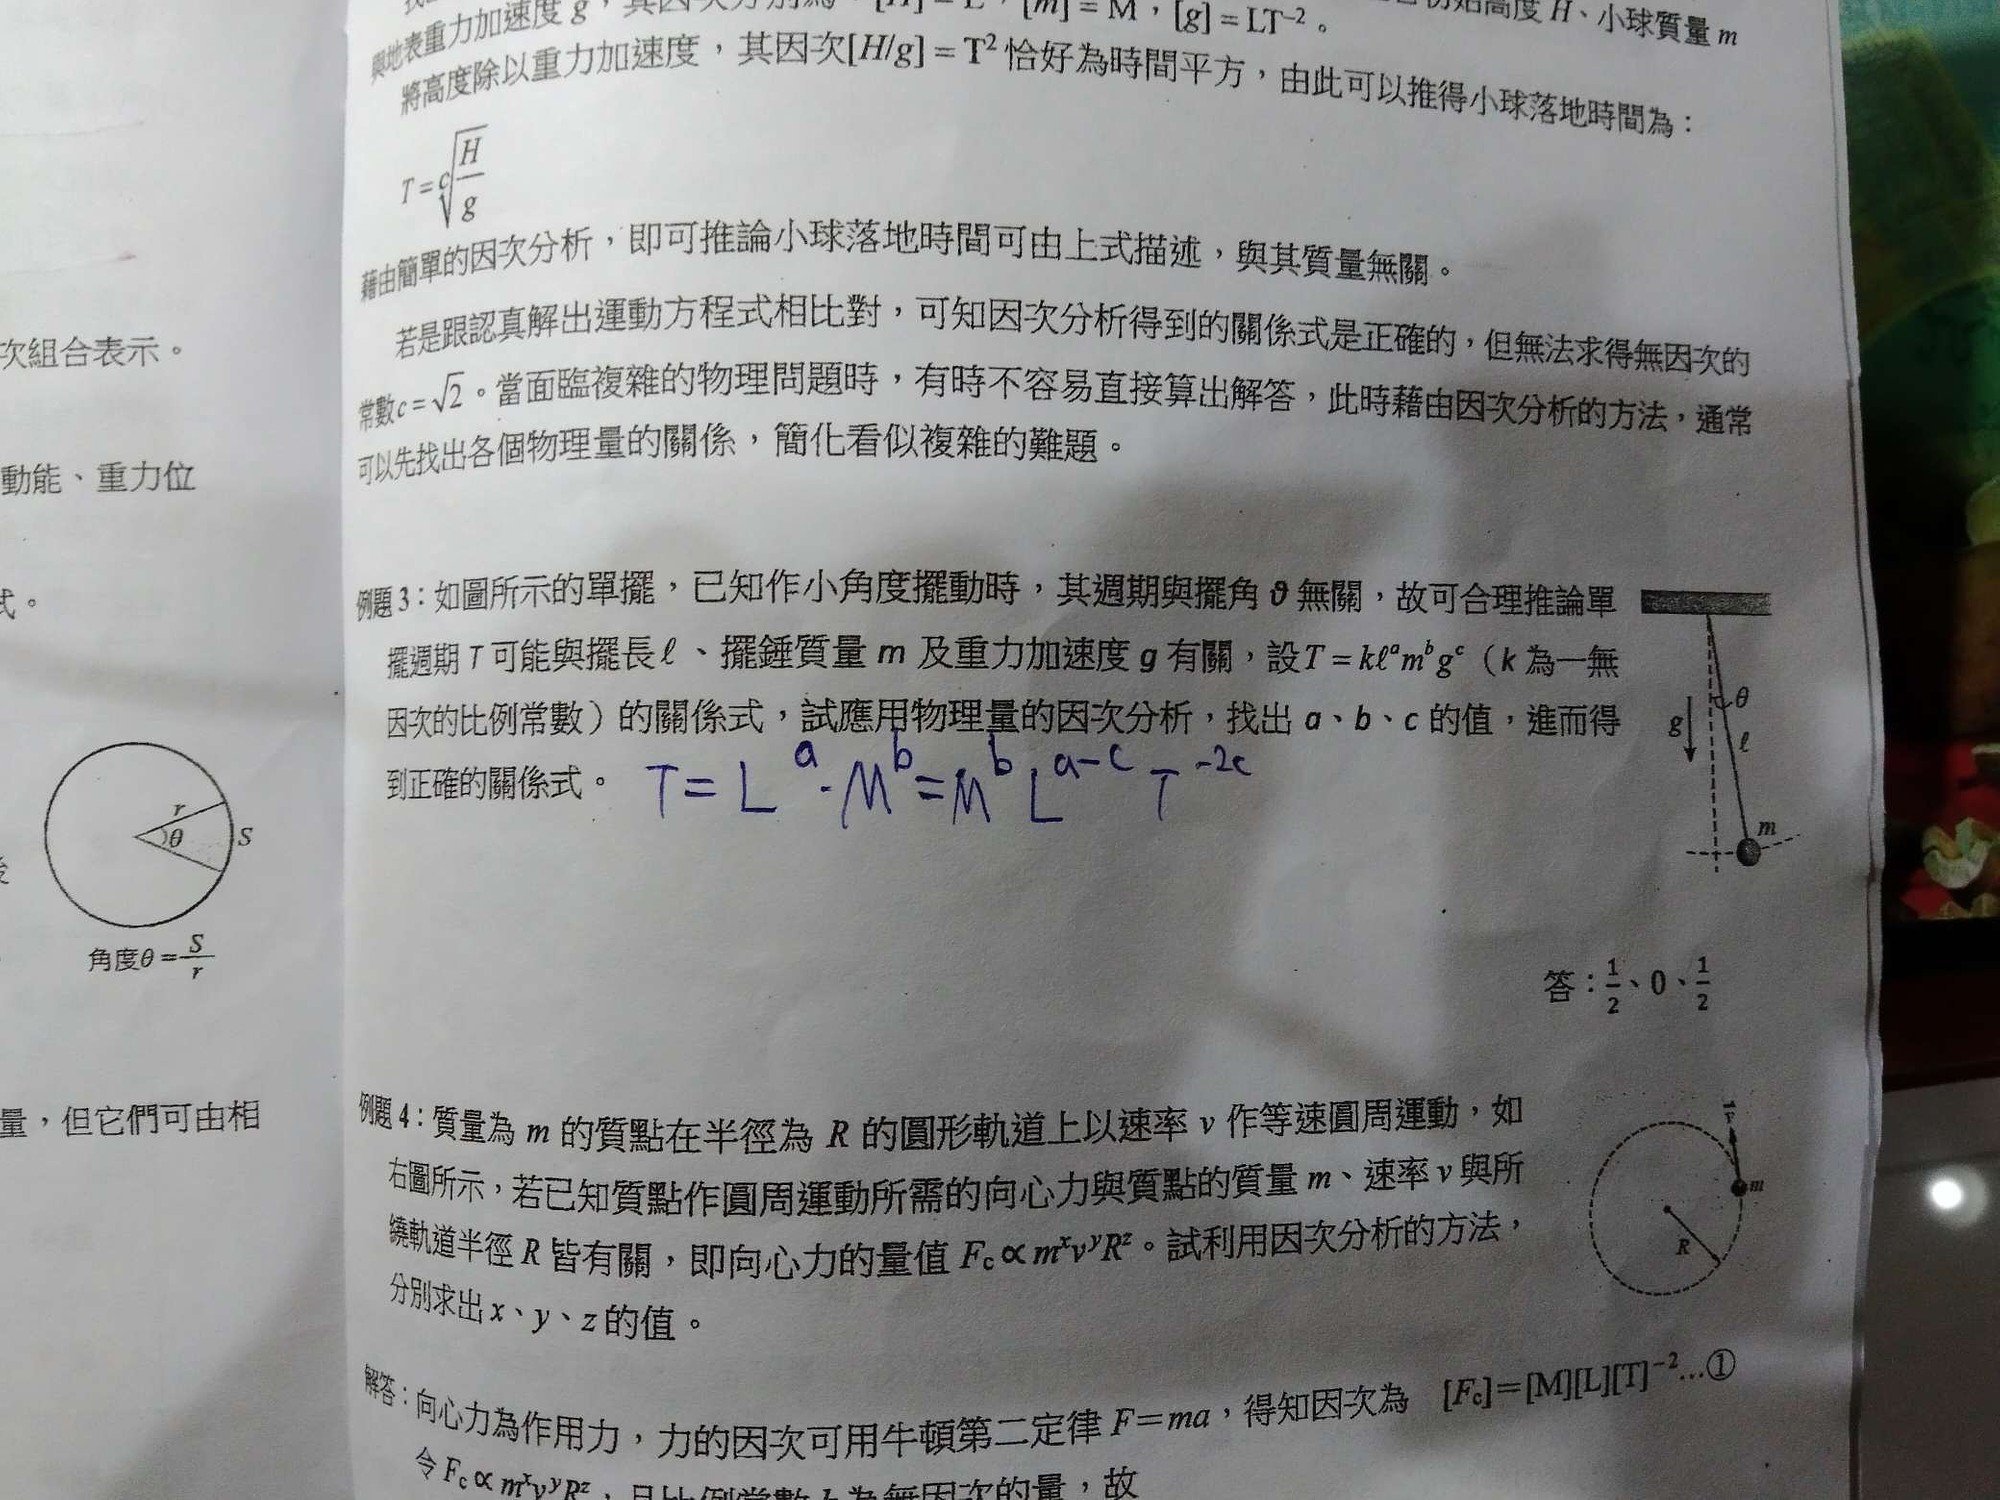 次組合表示。
動能、重力位
式。
r
θ
S
角度θ=S/r
量,但它們可由相
[m] = M,[g] = LT⁻²。
初始高度 H、小球質量 m
與地表重力加速度 g,其因次分別為
將高度除以重力加速度,其因次[H/g] = T² 恰好為時間平方,由此可以推得小球落地時間為:
T = c√(H/g)
藉由簡單的因次分析,即可推論小球落地時間可由上式描述,與其質量無關。
若是跟認真解出運動方程式相比對,可知因次分析得到的關係式是正確的,但無法求得無因次的
常數c = √2。當面臨複雜的物理問題時,有時不容易直接算出解答,此時藉由因次分析的方法,通常
可以先找出各個物理量的關係,簡化看似複雜的難題。
例題 3:如圖所示的單擺,已知作小角度擺動時,其週期與擺角 θ 無關,故可合理推論單
擺週期 T 可能與擺長 ℓ 、擺錘質量 m 及重力加速度 g 有關,設T = kℓᵃmᵇgᶜ(k 為一無
因次的比例常數)的關係式,試應用物理量的因次分析,找出 a、b、c 的值,進而得
到正確的關係式。
T = Lᵃ · Mᵇ = Mᵇ Lᵃ⁻ᶜ T⁻²ᶜ
g
θ
ℓ
m
答:1/2、0、1/2
例題 4:質量為 m 的質點在半徑為 R 的圓形軌道上以速率 v 作等速圓周運動,如
右圖所示,若已知質點作圓周運動所需的向心力與質點的質量 m、速率 v 與所
繞軌道半徑 R 皆有關,即向心力的量值 Fc ∝ mˣvʸRᶻ。試利用因次分析的方法,
分別求出 x、y、z 的值。
v
m
R
解答:向心力為作用力,力的因次可用牛頓第二定律 F=ma,得知因次為 [Fc]=[M][L][T]⁻²…①
令 Fc ∝ mˣvʸRᶻ,且比例常數 k 為無因次的量,故